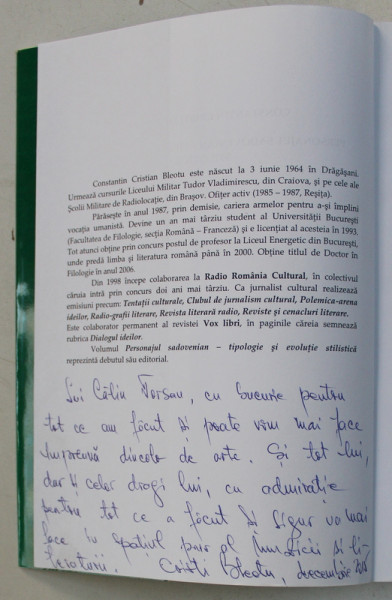 Constantin Cristian Bleotu este născut la 3 iunie 1964 în Drăgășani.
Urmează cursurile Liceului Militar Tudor Vladimirescu, din Craiova, și pe cele ale
Școlii Militare de Radiolocație, din Brașov. Ofițer activ (1985 – 1987, Reșița).
Părăsește în anul 1987, prin demisie, cariera armelor pentru a-și împlini
vocația umanistă. Devine un an mai târziu student al Universității București
(Facultatea de Filologie, secția Română – Franceză) și e licențiat al acesteia în 1993.
Tot atunci obține prin concurs postul de profesor la Liceul Energetic din București,
unde predă limba și literatura română până în 2000. Obține titlul de Doctor în
Filologie în anul 2006.
Din 1998 începe colaborarea la Radio România Cultural, în colectivul
căruia intră prin concurs doi ani mai târziu. Ca jurnalist cultural realizează
emisiuni precum: Tentații culturale, Clubul de jurnalism cultural, Polemica-arena
ideilor, Radio-grafii literare, Revista literară radio, Reviste și cenacluri literare.
Este colaborator permanent al revistei Vox libri, în paginile căreia semnează
rubrica Dialogul ideilor.
Volumul Personajul sadovenian – tipologie și evoluție stilistică
reprezintă debutul său editorial.
Lui Călin Torsan, cu bucurie pentru
tot ce am făcut și poate vom mai face
împreună dincolo de arte. Și tot lui,
dar și celor dragi lui, cu admirație
pentru tot ce a făcut și sigur va mai
face în spațiul pur al muzicii și li-
teraturii. Cristi Bleotu, decembrie